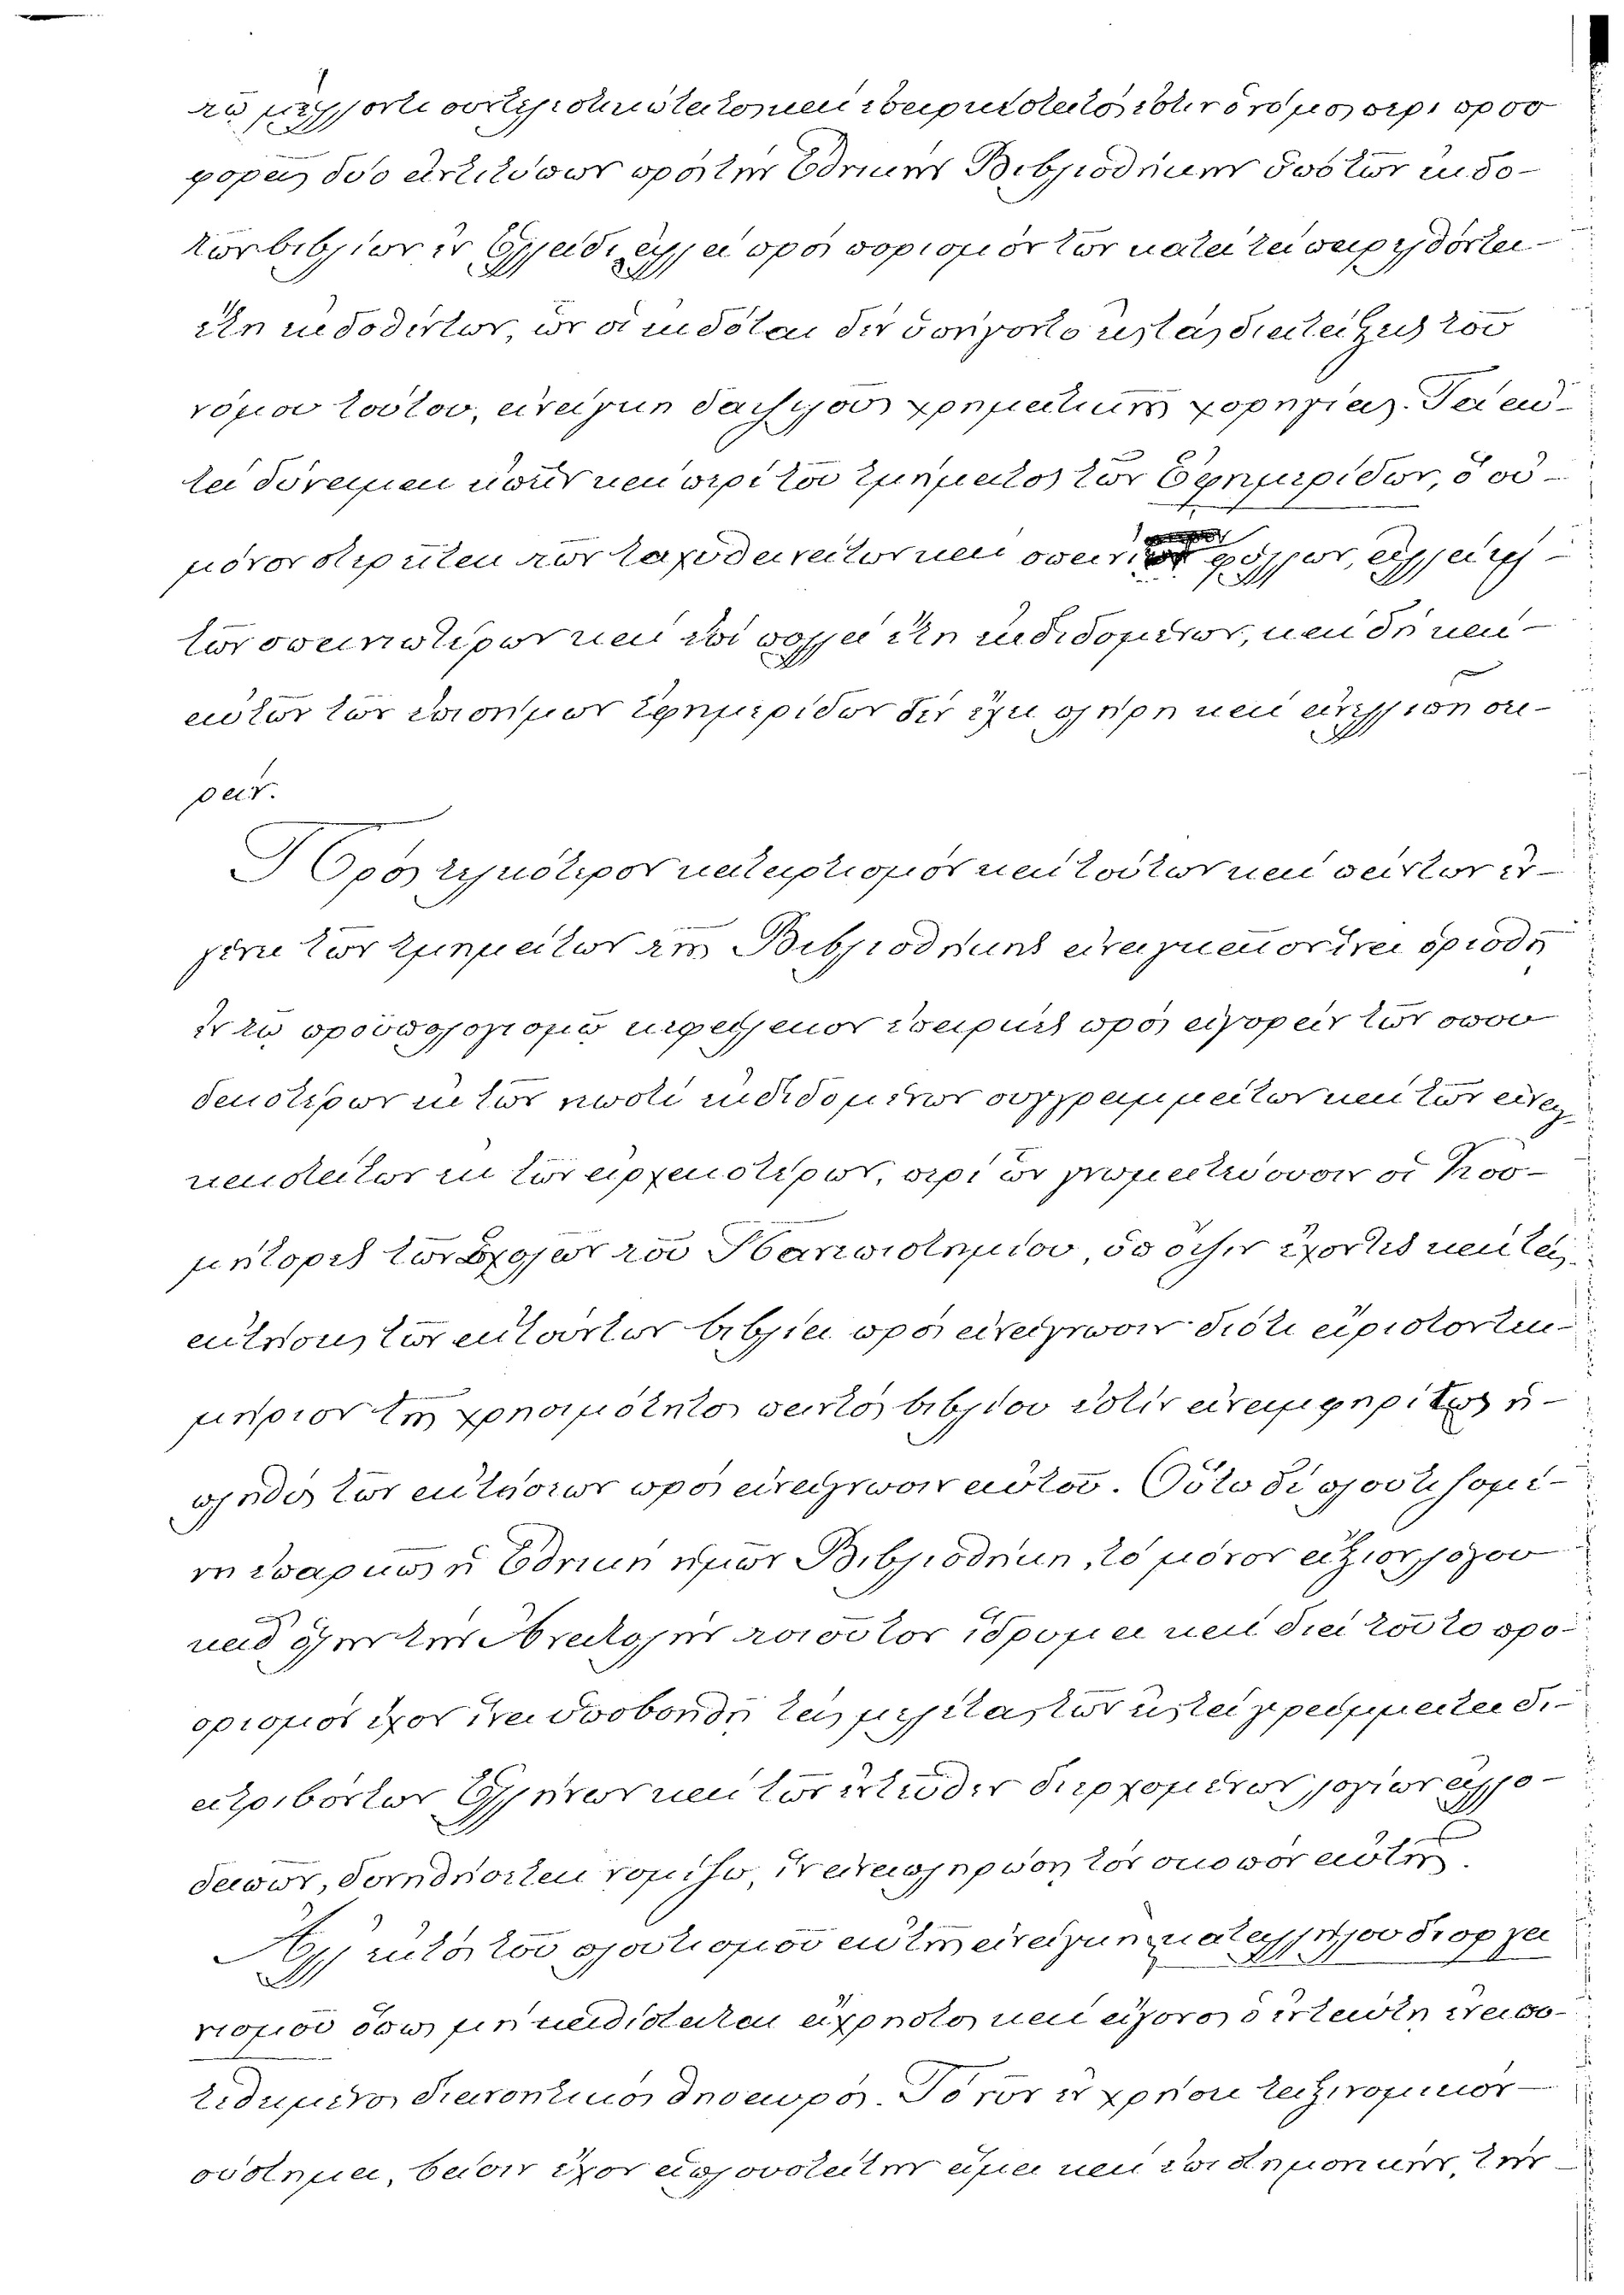 τῷ μέλλοντι ἐπαρκέστατός ἐστιν ὁ νόμος περὶ προσ-
φορᾶς δύο ἀντιτύπων πρὸς τὴν Ἐθνικὴν Βιβλιοθήκην ὑπὸ τῶν ἐκδο-
τῶν βιβλίων ἐν Ἑλλάδι, ἀλλὰ πρὸς πορισμὸν τῶν κατὰ τὰ παρελθόντα
ἔτη ἐκδοθέντων, ὧν οἱ ἐκδόται δὲν ὑπήγοντο εἰς τὰς διατάξεις τοῦ
νόμου τούτου, ἀνάγκη δαψιλοῦς χρηματικῆς χορηγίας. Τὰ αὐ-
τὰ δύναμαι εἰπεῖν καὶ περὶ τοῦ τμήματος τῶν Ἐφημερίδων, ὃ οὐ
μόνον στερεῖται τῶν καὶ σπανίων φύλλων, ἀλλὰ καὶ
τῶν σπανιωτέρων καὶ ἐπὶ πολλὰ ἔτη ἐκδιδομένων, καὶ δὴ καὶ
αὐτῶν τῶν ἐπισήμων ἐφημερίδων δὲν ἔχει πλήρη καὶ ἀνελλιπῆ σει-
ράν.
Πρὸς τελειότερον καταρτισμὸν καὶ τούτων καὶ πάντων ἐν
γένει τῶν τμημάτων τῆς Βιβλιοθήκης ἀναγκαῖον ἵνα ὁρισθῇ
ἐν τῷ προϋπολογισμῷ κεφάλαιον ἐπαρκὲς πρὸς ἀγορὰν τῶν σπου-
δαιοτέρων ἐκ τῶν ἑκάστοτε ἐκδιδομένων συγγραμμάτων καὶ τῶν ἀναγ-
καιοτάτων ἐκ τῶν ἀρχαιοτέρων, περὶ ὧν γνωματεύουσιν οἱ Κοσ-
μήτορες τῶν Σχολῶν τοῦ Πανεπιστημίου, ὑπ' ὄψιν ἔχοντες καὶ τὰς
αἰτήσεις τῶν αἰτούντων βιβλία πρὸς ἀνάγνωσιν διότι ἄριστον τεκ-
μήριον τῆς χρησιμότητος παντὸς βιβλίου ἐστὶν ἀναμφηρίστως ἡ
πληθὺς τῶν αἰτήσεων πρὸς ἀνάγνωσιν αὐτοῦ. Οὕτω δὲ πλουτιζομέ-
νη ἐπαρκῶς ἡ Ἐθνικὴ ἡμῶν Βιβλιοθήκη, τὸ μόνον ἄξιον λόγου
καθ' ὅλην τὴν Ἀνατολὴν τοιοῦτον ἵδρυμα καὶ διὰ τοῦτο προ-
ορισμὸν ἔχον ἵνα ὑποβοηθῇ τὰς μελέτας τῶν εἰς τὰ γράμματα δι-
ατριβόντων Ἑλλήνων καὶ τῶν ἐνταῦθα διερχομένων λογίων ἀλλο-
δαπῶν, δυνηθήσεται νομίζω, ἵν' ἀναπληρώσῃ τὸν σκοπὸν αὐτῆς.
Ἀλλ' ἐκτὸς τοῦ πλουτισμοῦ αὐτῆς ἀνάγκη καταλλήλου διοργα
νισμοῦ ὅπως μὴ καθίσταται ἄχρηστος καὶ ἄγονος ὁ ἐνταῦθα ἐναπο-
τεθειμένος διανοητικὸς θησαυρός. Τὸ νῦν ἐν χρήσει ταξινομικὸν
σύστημα, βάσιν ἔχον ἁπλουστάτην ἅμα καὶ ἐπιστημονικήν, τὴν